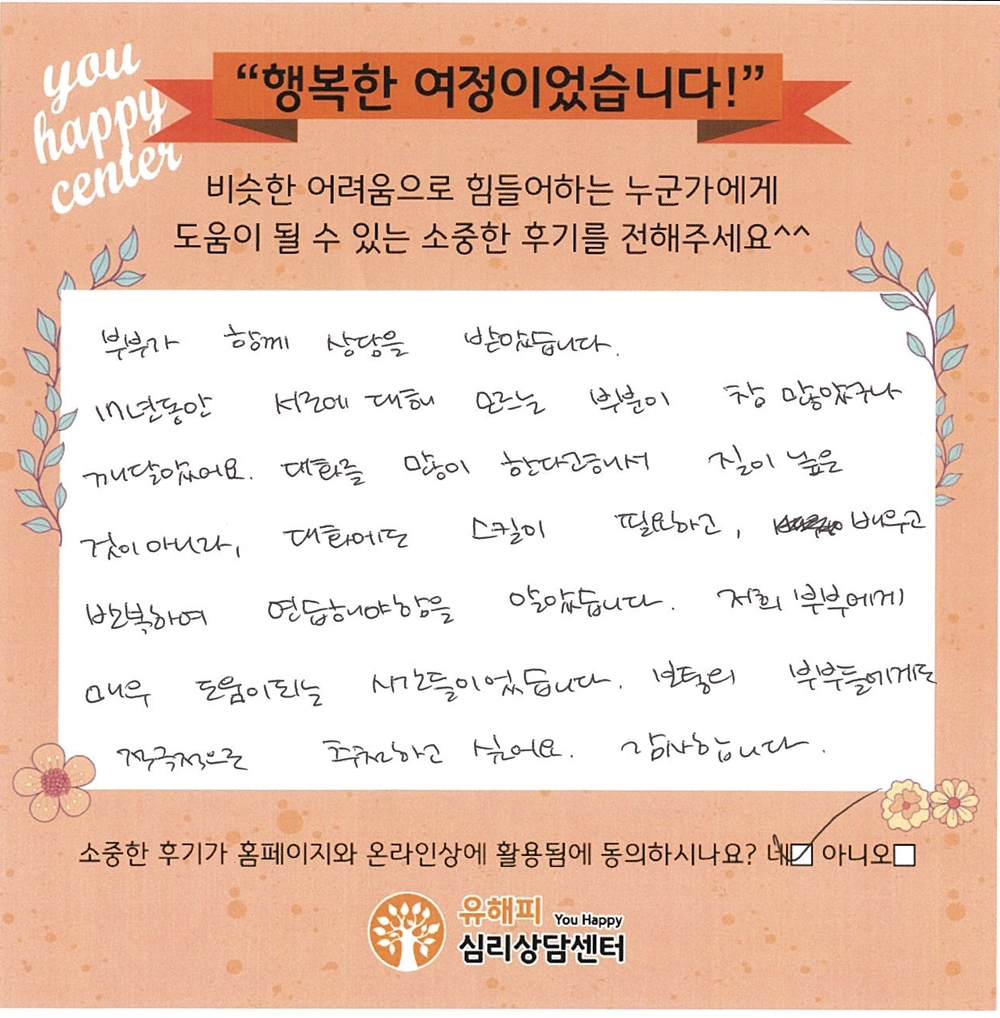 you
happy
center
“행복한 여정이었습니다!”
비슷한 어려움으로 힘들어하는 누군가에게
도움이 될 수 있는 소중한 후기를 전해주세요^^
부부가 함께 상담을 받았습니다.
17년동안 서로에 대해 모르는 부분이 참 많았구나
깨달았어요. 대화를 많이 한다고해서 질이 높은
것이 아니라, 대화에도 스킬이 필요하고, 배우고
반복하여 연습해야함을 알았습니다. 저희 부부에게
매우 도움이되는 시간들이었습니다. 보통의 부부들에게도
적극적으로 추천하고 싶어요. 감사합니다.
소중한 후기가 홈페이지와 온라인상에 활용됨에 동의하시나요? 네 아니오
유해피 You Happy
심리상담센터